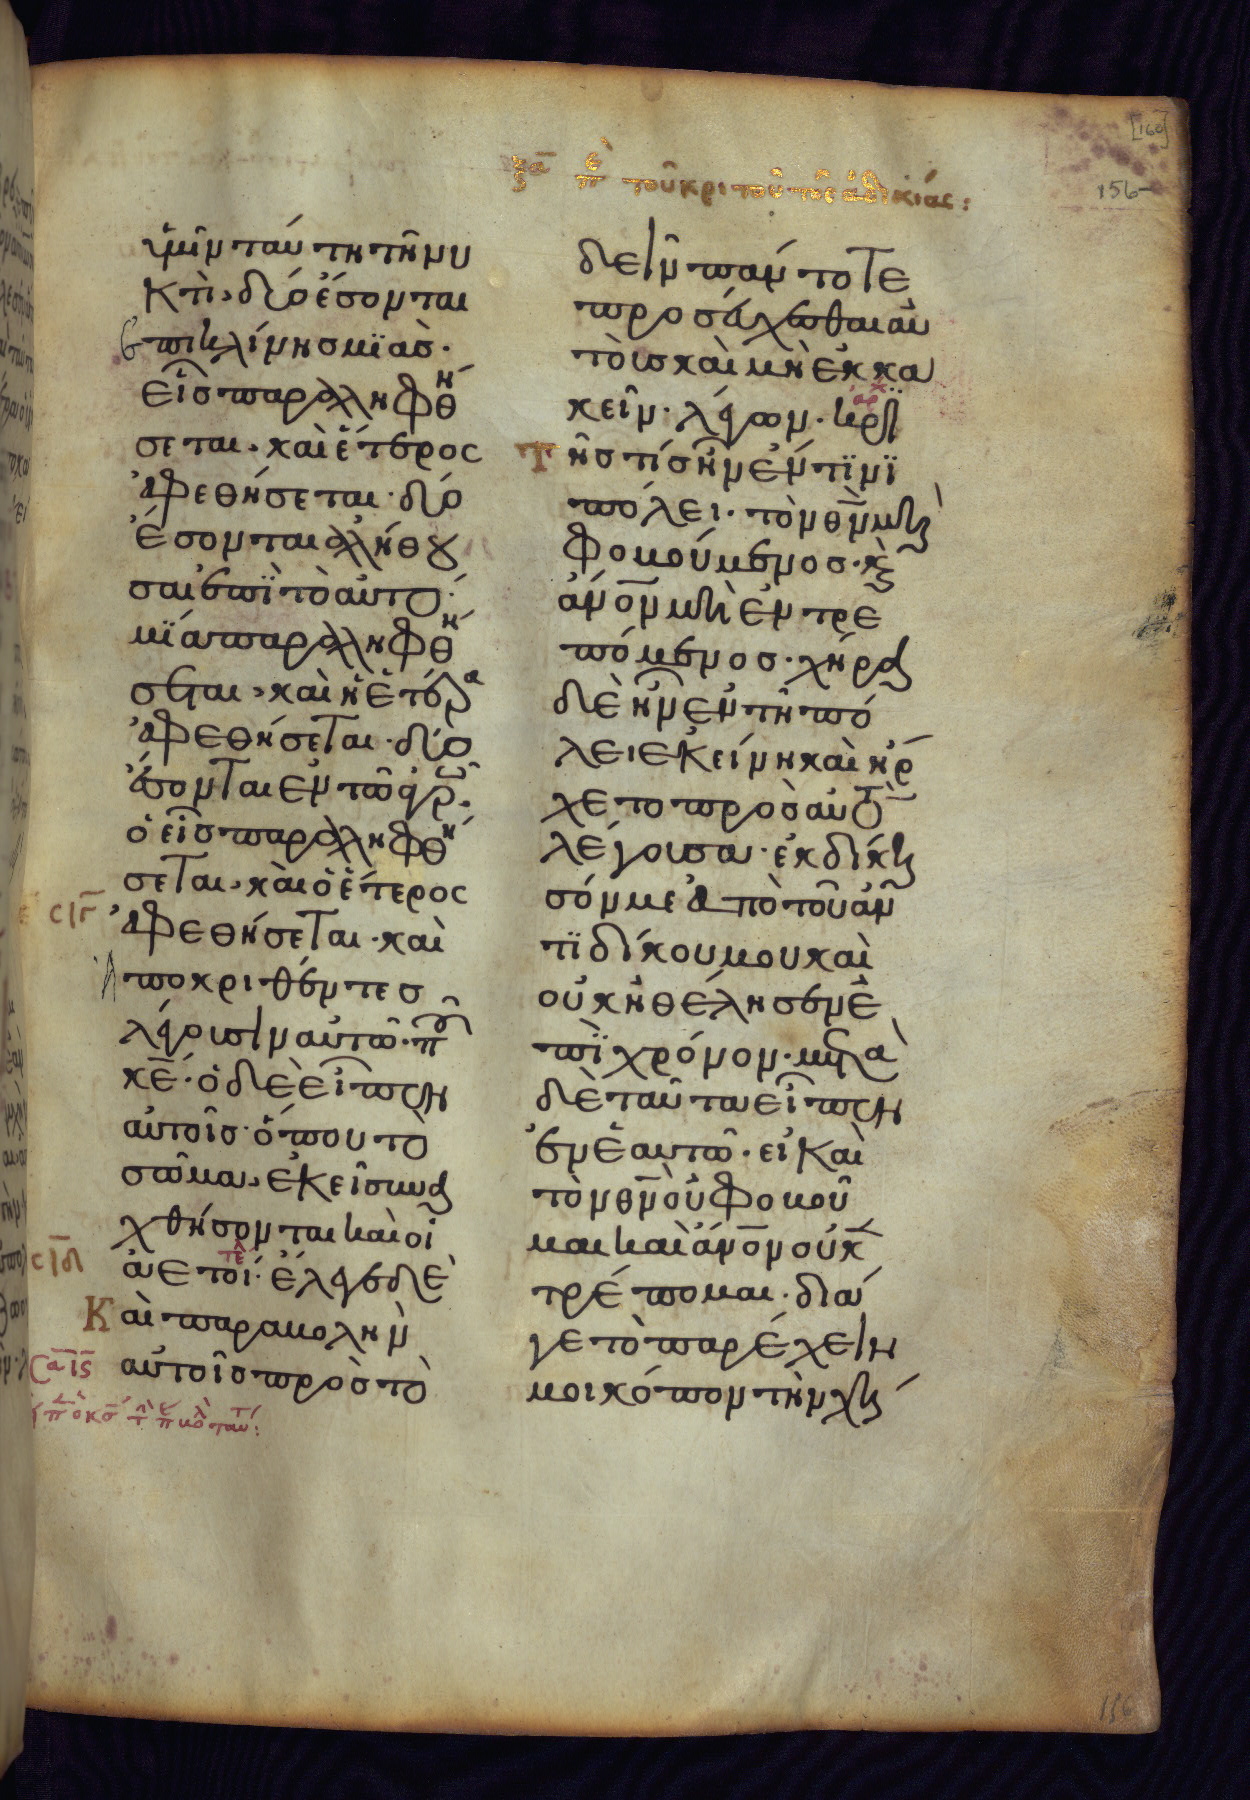 ξα πε τοῦ κριτοῦ τῆς ἀδικίας:
[160]
156
ὑμῖν ταύτη τῆ νυ
κτὶ, δύο ἔσονται
ἐπι κλίνης μϊᾶσ·
εἷσ παραληφθή
σεται, καὶ ἕτερος
ἀφεθήσεται· δύο
ἔσονται ἀλήθου
σαι ἐπϊ τὸ αὐτό·
μία παραληφθή
σεται, καὶ ἡ ἑτέρα
ἀφεθήσεται· δύο
ἔσονται ἐν τῶ ἀγρῶ·
ὁ εἷσ παραληφθή
σεται, καὶ ὁ ἕτερος
σιγ
ἀφεθήσεται· καὶ
ἀποκριθέντεσ
λέγουσιν αὐτῶ· ποῦ
κε· ὁ δὲ εἶπεν
αὐτοῖσ· ὅπου τὸ
σῶμα, ἐκεῖ συνα
χθήσονται καὶ οἱ
τε
σιδ
ἀετοί· ἔλεγε δὲ
Καὶ παραβολὴν
αὐτοῖσ πρὸσ τὸ
δεῖν πάντοτε
προσεύχεσθαι αὐ
τοὺσ καὶ μὴ ἐκκα
κεῖν· λέγων· κριτῆσ
τισ ἦν ἔν τϊνϊ
πόλει· τὸν θν μὴ
φοβούμενοσ· καὶ
ἄνον μὴ ἐντρε
πόμενοσ· χήρα
δὲ ἦν ἐν τῆ πό
λει ἐκείνη καὶ ἤρ
χετο πρὸσ αὐτὸν
λέγουσα· ἐκδίκη
σόν με ἀπὸ τοῦ ἀν
τϊδίκου μου καὶ
οὐκ ἠθέλησεν ἐ
πϊ χρόνον· μετὰ
δὲ ταῦτα εἶπεν
ἐν ἑαυτῶ· εἰ καὶ
τὸν θν οὐ φοβοῦ
μαι καὶ ἄνον οὐκ ἐν
τρέπομαι· διά
γε τὸ παρέχειν
μοι κόπον τὴν χή
156